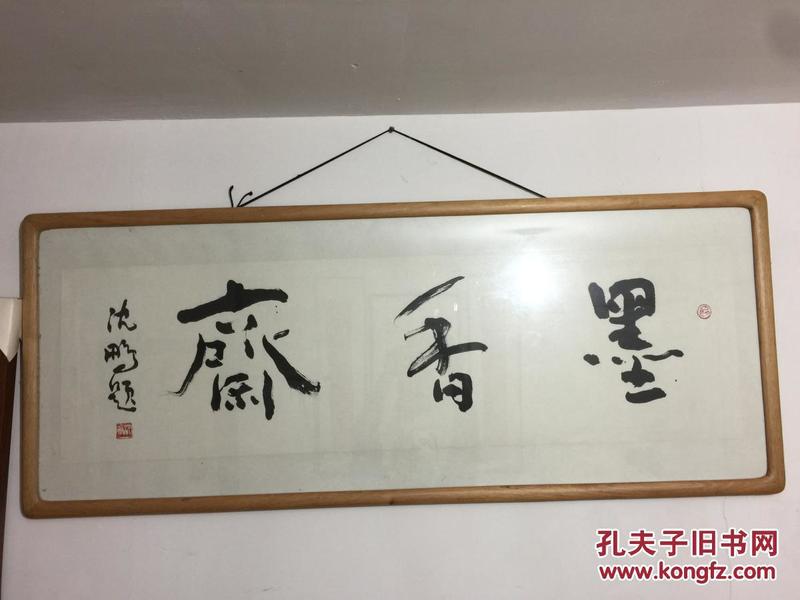 墨香齋
沈鹏题
孔夫子旧书网
www.kongfz.com